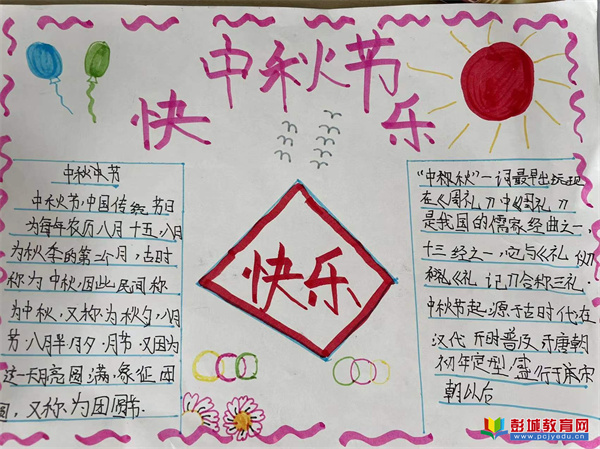 中秋节
快 乐
中秋中节
中秋节,中国传统节日
为每年农历八月十五,八月
为秋季的第二个月,古时
称为中秋,因此民间称
为中秋,又称为秋夕,八月
节,八月半,月夕,月节,又因为
这一天月亮圆满,象征团
圆,又称为团圆节.
快乐
"中秋"一词最早出现
在《周礼》中《周礼》
是我国的儒家经典之一,
十三经之一,它与《礼仪》
《礼记》合称三礼.
中秋节起源于古时代在
汉代 时普及 于唐朝
初年定型,盛行于宋
朝以后
彭城教育网
www.pcjyedu.cn